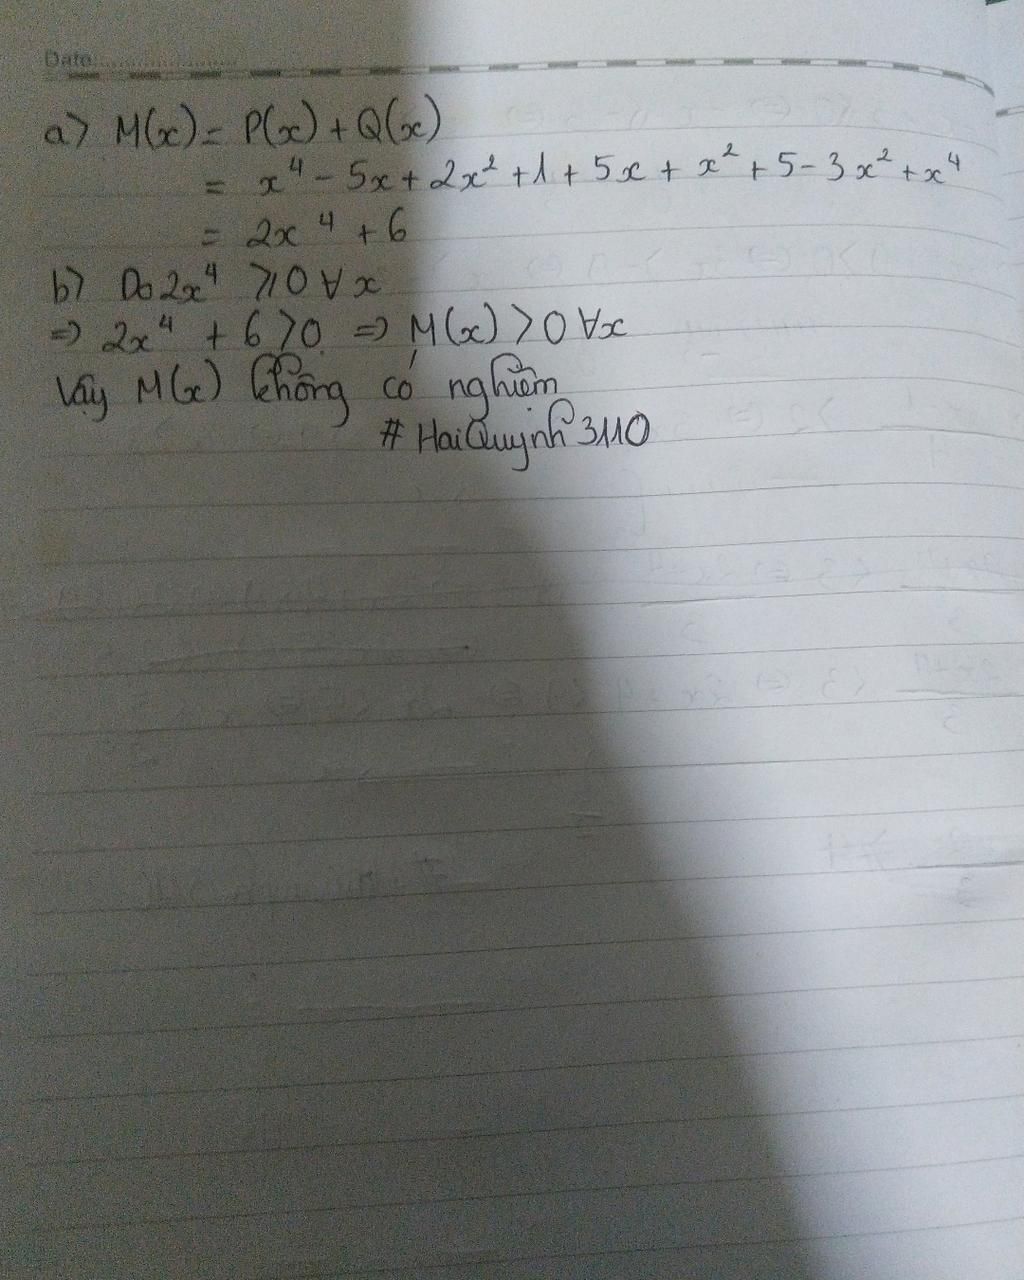 Date:
a) M(x) = P(x) + Q(x)
= x⁴ - 5x + 2x² + 1 + 5x + x² + 5 - 3x² + x⁴
= 2x⁴ + 6
b) Do 2x⁴ ≥ 0 ∀x
=> 2x⁴ + 6 > 0 => M(x) > 0 ∀x
Vậy M(x) không có nghiệm
# HaiQuynh3110